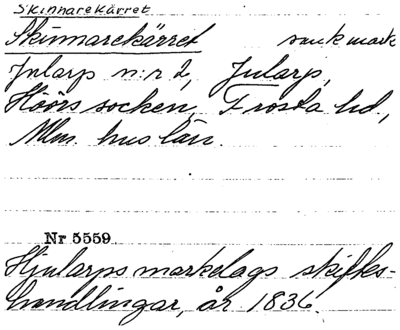 Skinnarekärret
Skinnarekärret sank mark
Jularp n:r 2, Jularp,
Höörs socken, Frosta hd.,
Mlm. hus län.
Nr 5559
Hjularps markelags skifks-
handlingar, år 1836.